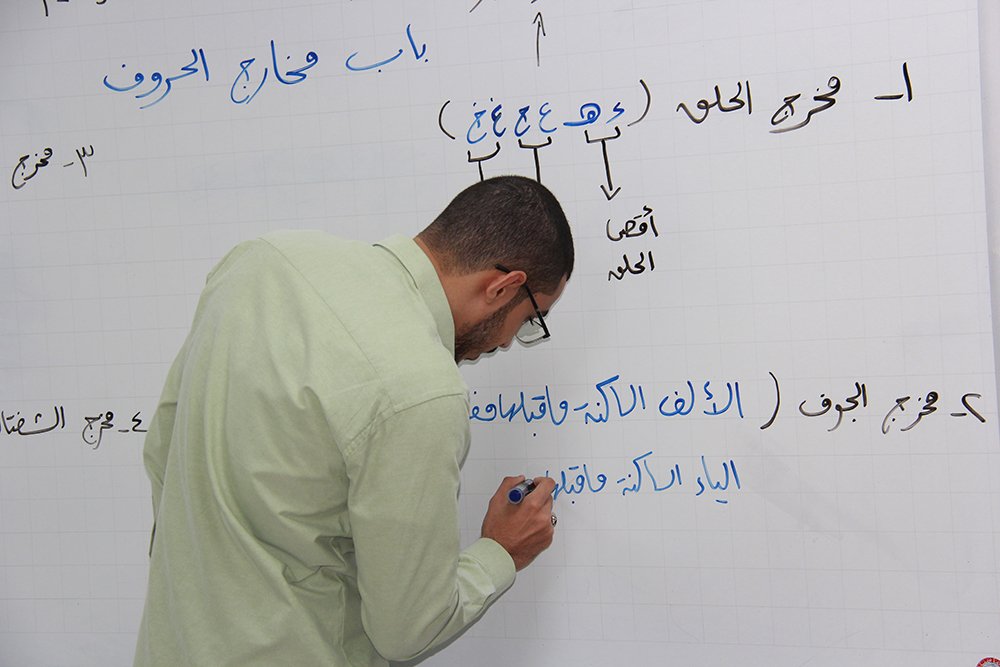 باب مخارج الحروف
١- مخرج الحلق (ء هـ ع ح غ خ)
أقصى
الحلق
٢- مخرج الجوف (الألف الساكنة ماقبلها
الياء الساكنة ماقبلها
٣- مخرج
٤- مخرج